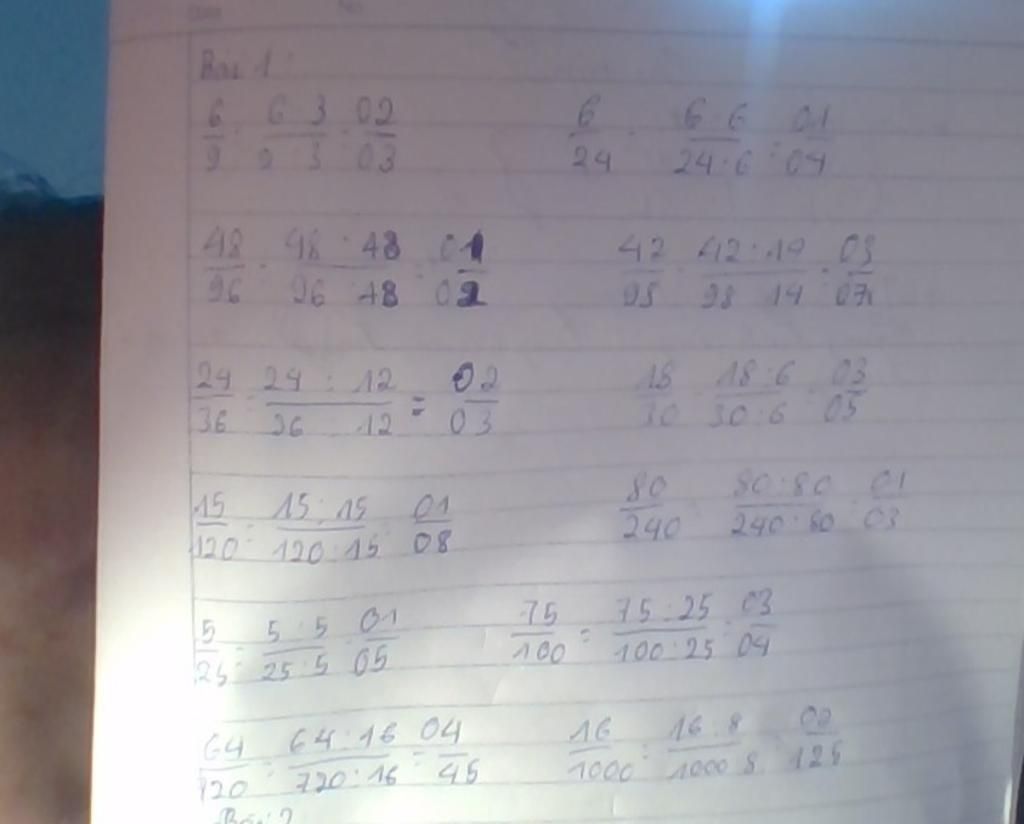 Bài 1:
6/9 = 6:3/9:3 = 02/03 6/24 = 6:6/24:6 = 01/04
48/96 = 48:48/96:48 = 01/02 42/98 = 42:14/98:14 = 03/07
24/36 = 24:12/36:12 = 02/03 18/30 = 18:6/30:6 = 03/05
15/120 = 15:15/120:15 = 01/08 80/240 = 80:80/240:80 = 01/03
5/25 = 5:5/25:5 = 01/05 75/100 = 75:25/100:25 = 03/04
64/720 = 64:16/720:16 = 04/45 16/1000 = 16:8/1000:8 = 02/125
Bài 2